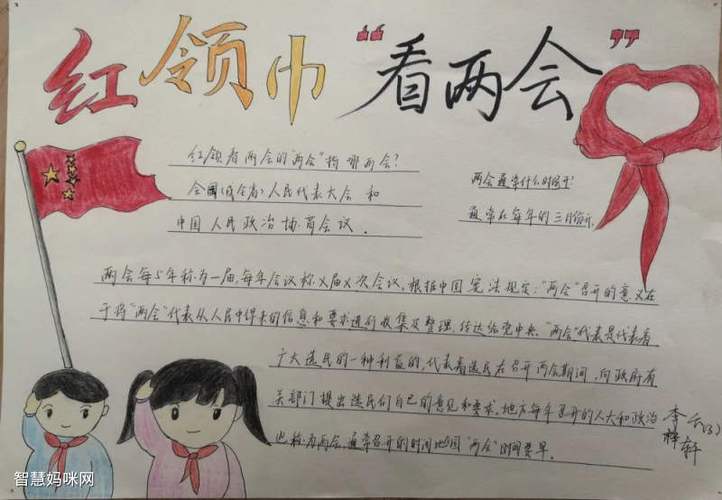 红领巾“看两会”
红领看两会的“两会”指哪两会?
全国(或全省)人民代表大会 和
中国人民政治协商会议。
两会通常什么时候开?
通常在每年的三月份开。
两会每5年称为一届,每年会议称X届X次会议。根据中国宪法规定:“两会”召开的意义在
于将“两会”代表从人民中得来的信息和要求进行收集及整理,传达给党中央。“两会”代表是代表着
广大选民的一种利益的,代表着选民在召开两会期间,向政府有
关部门提出选民们自己的意见和要求。地方每年召开的人大和政治
也称为两会,通常召开的时间比全国“两会”时间要早。
李梓轩
智慧妈咪网